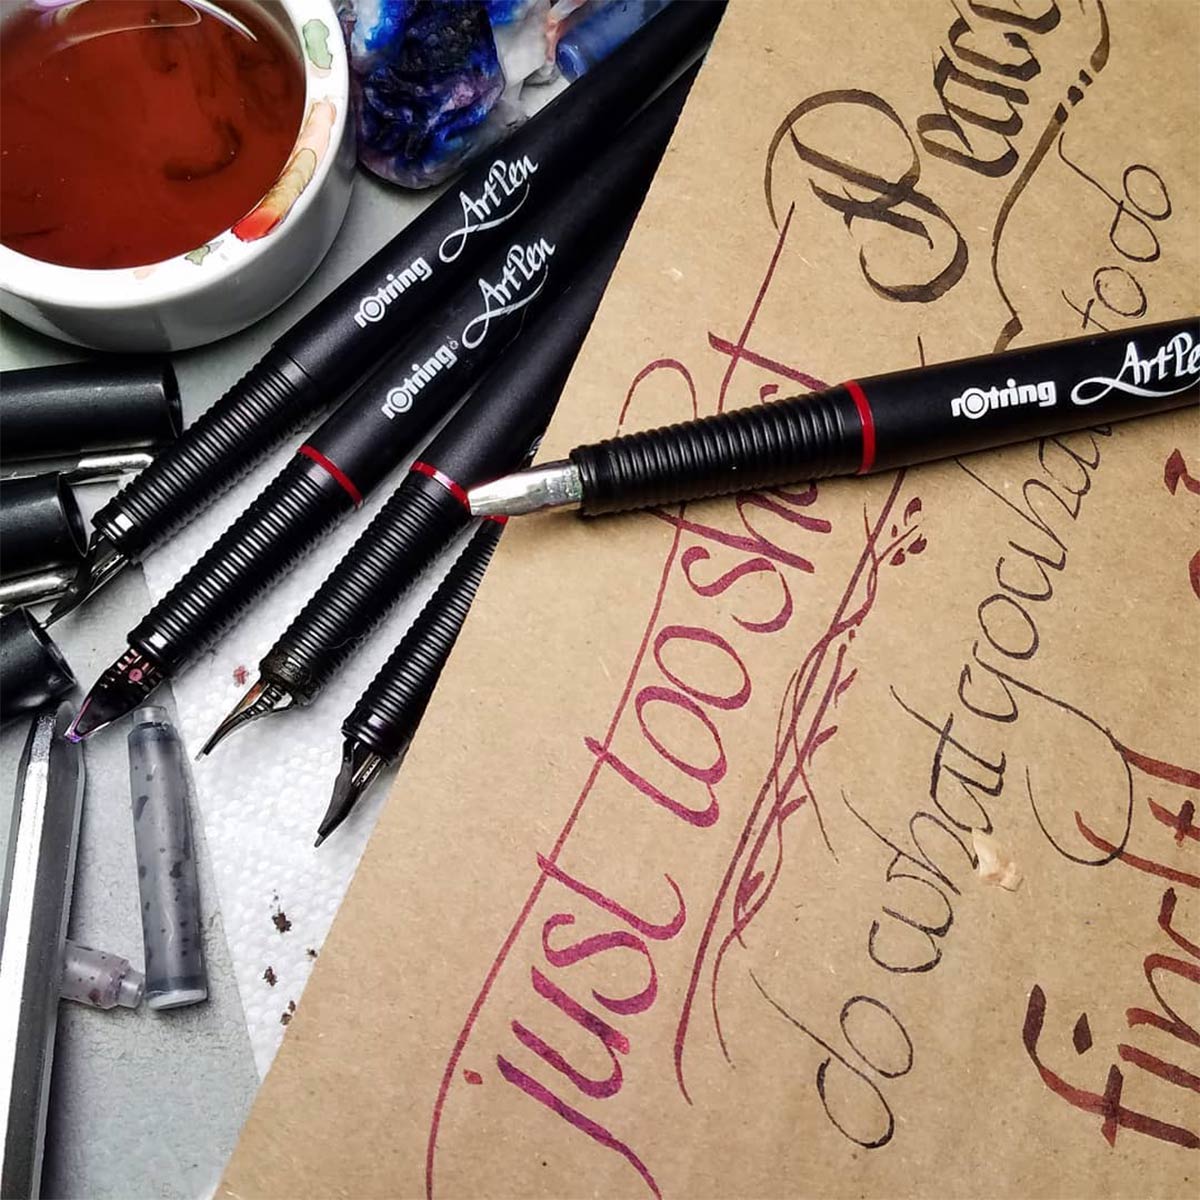 rotring ArtPen
rotring ArtPen
rotring ArtPen
Peace
just too short
do what you have to do
find